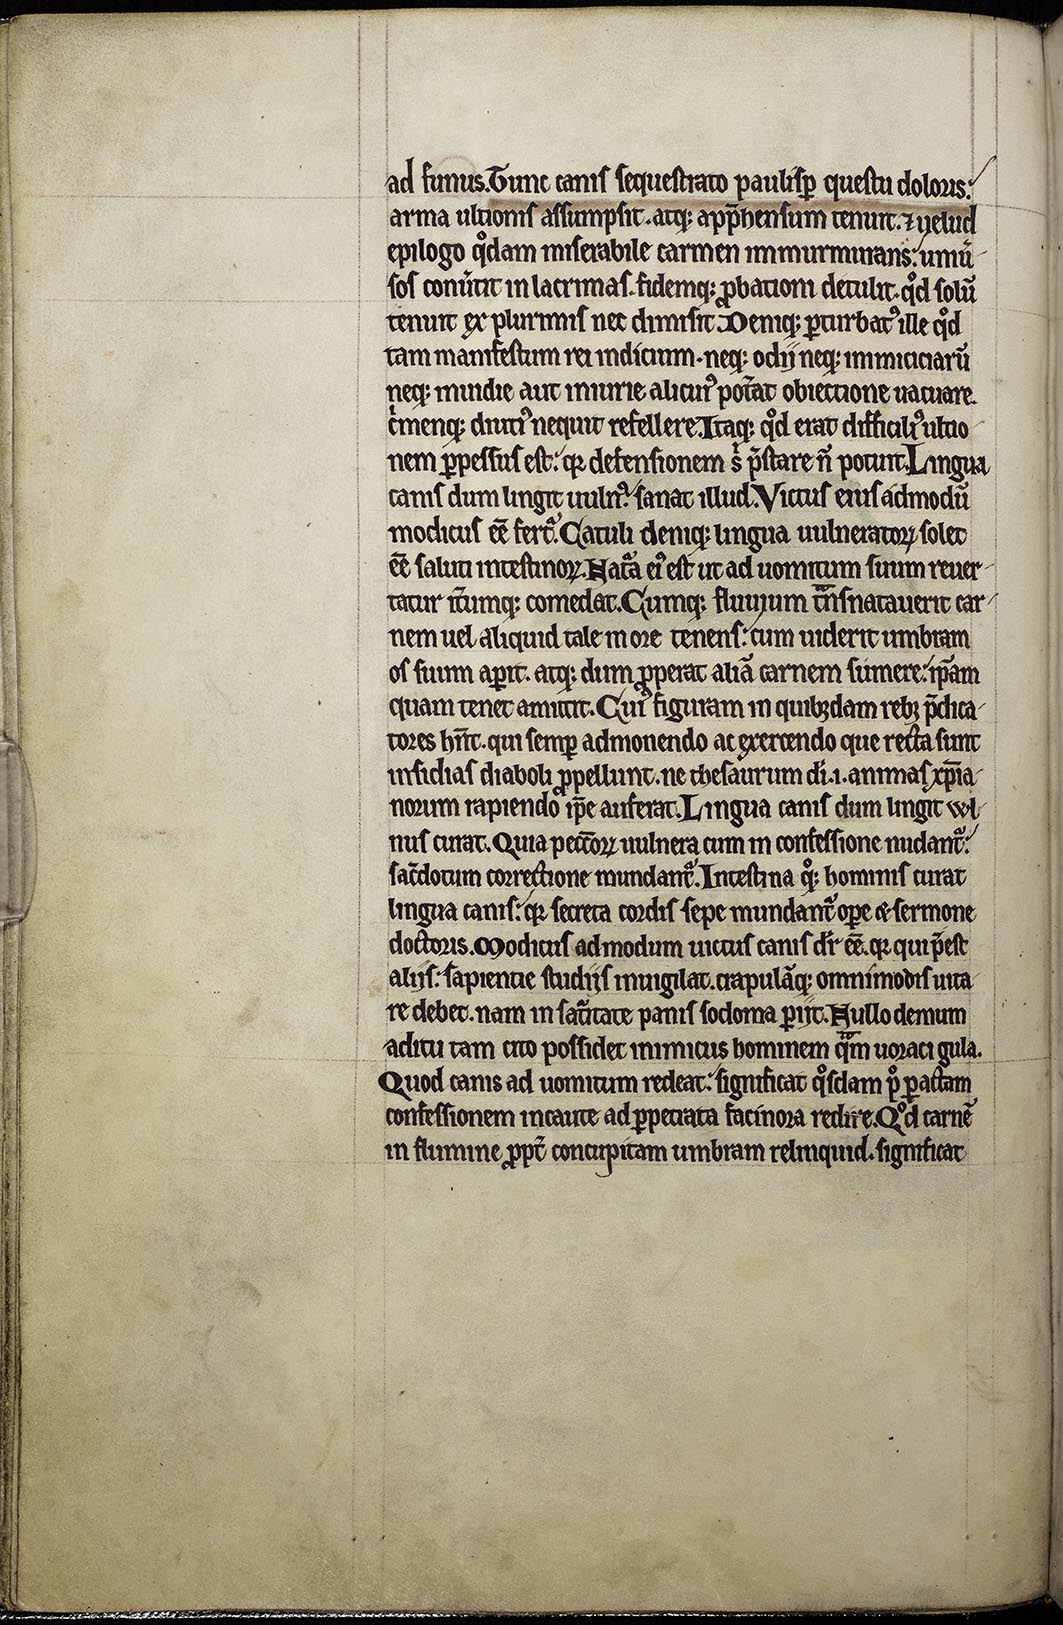 ad funus. Tunc canis sequestrato paulisꝑ questu doloris:
arma ultionis assumpsit. atq; app̄hensum tenuit. ⁊ uelud
epilogo qͦdam miserabile carmen immurmurans: umũ-
sos conũtit in lacrimas. fidemq; ꝓbationi detulit. qͦd solū
tenuit ex plurimis nec dimisit. Deniq; ꝑturbatꝰ ille qͦd
tam manifestum rei indicium. neq; odij neq; inimiciciarū
neq; inuidie aut iniurie alicuiꝰ pot̃at obiectione uacuare.
c̍menq; diutiꝰ nequit refellere. Itaq; qͦd erat difficiliꝰ ultio-
nem ꝑpessus est: qꝛ defensionem s̍ p̄stare n̄ potuit. Lingua
canis dum lingit uulnꝰ: sanat illud. Victus eius admodū
modicus eē fert᷑. Catuli deniq; lingua uulneratoꝝ solet
eē saluti intestinoꝝ. Nat᷑a eiꝰ est ut ad uomitum suum reuer-
tatur it̃umq; comedat. Cumq; fluuium t᷑nsnatauerit car-
nem uel aliquid tale in ore tenens: cum uiderit umbram
os suum aꝑit. atq; dum ꝓperat aliā carnem sumere: ip̄am
quam tenet amittit. Cuiꝰ figuram in quibꝫdam rebꝫ p̄dica-
tores hn̄t. qui semꝑ admonendo ac exercendo que recta sunt
insidias diaboli ꝓpellunt. ne thesaurum di̅.i. animas xp̄ia-
norum rapiendo ip̄e auferat. Lingua canis dum lingit wl-
nus curat. Quia pecc̄oꝝ uulnera cum in confessione nudant᷑:
sac̃dotum correctione mundant᷑. Intestina qͦ; hominis curat
lingua canis: qꝛ secreta cordis sepe mundant᷑ oꝑe & sermone
doctoris. Modicus admodum uictus canis dr̄ eē. qꝛ qui p̄est
alijs: sapientie studijs inuigilat. crapulāq; omnimodis uita-
re debet. nam in sat᷑itate panis sodoma ꝑijt. Nullo demum
aditu tam cito possidet inimicus hominem q᷑m uoraci gula.
Quod canis ad uomitum redeat: significat qͦsdam pͦ ꝑactam
confessionem incaute ad ꝑpetrata facinora redire. Qͦd carnē
in flumine ꝓpt̃ concupitam umbram relinquid. significat